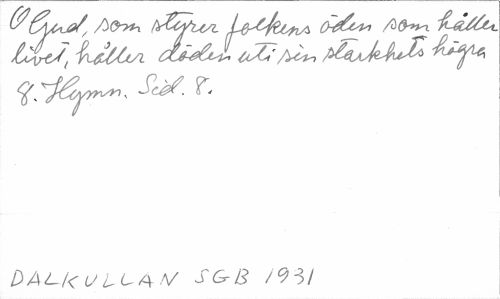 O Gud, som styrer folkens öden som håller
livet, håller döden uti sin starkhets högra
8. Hymn. Sid. 8.
DALKULLAN SGB 1931